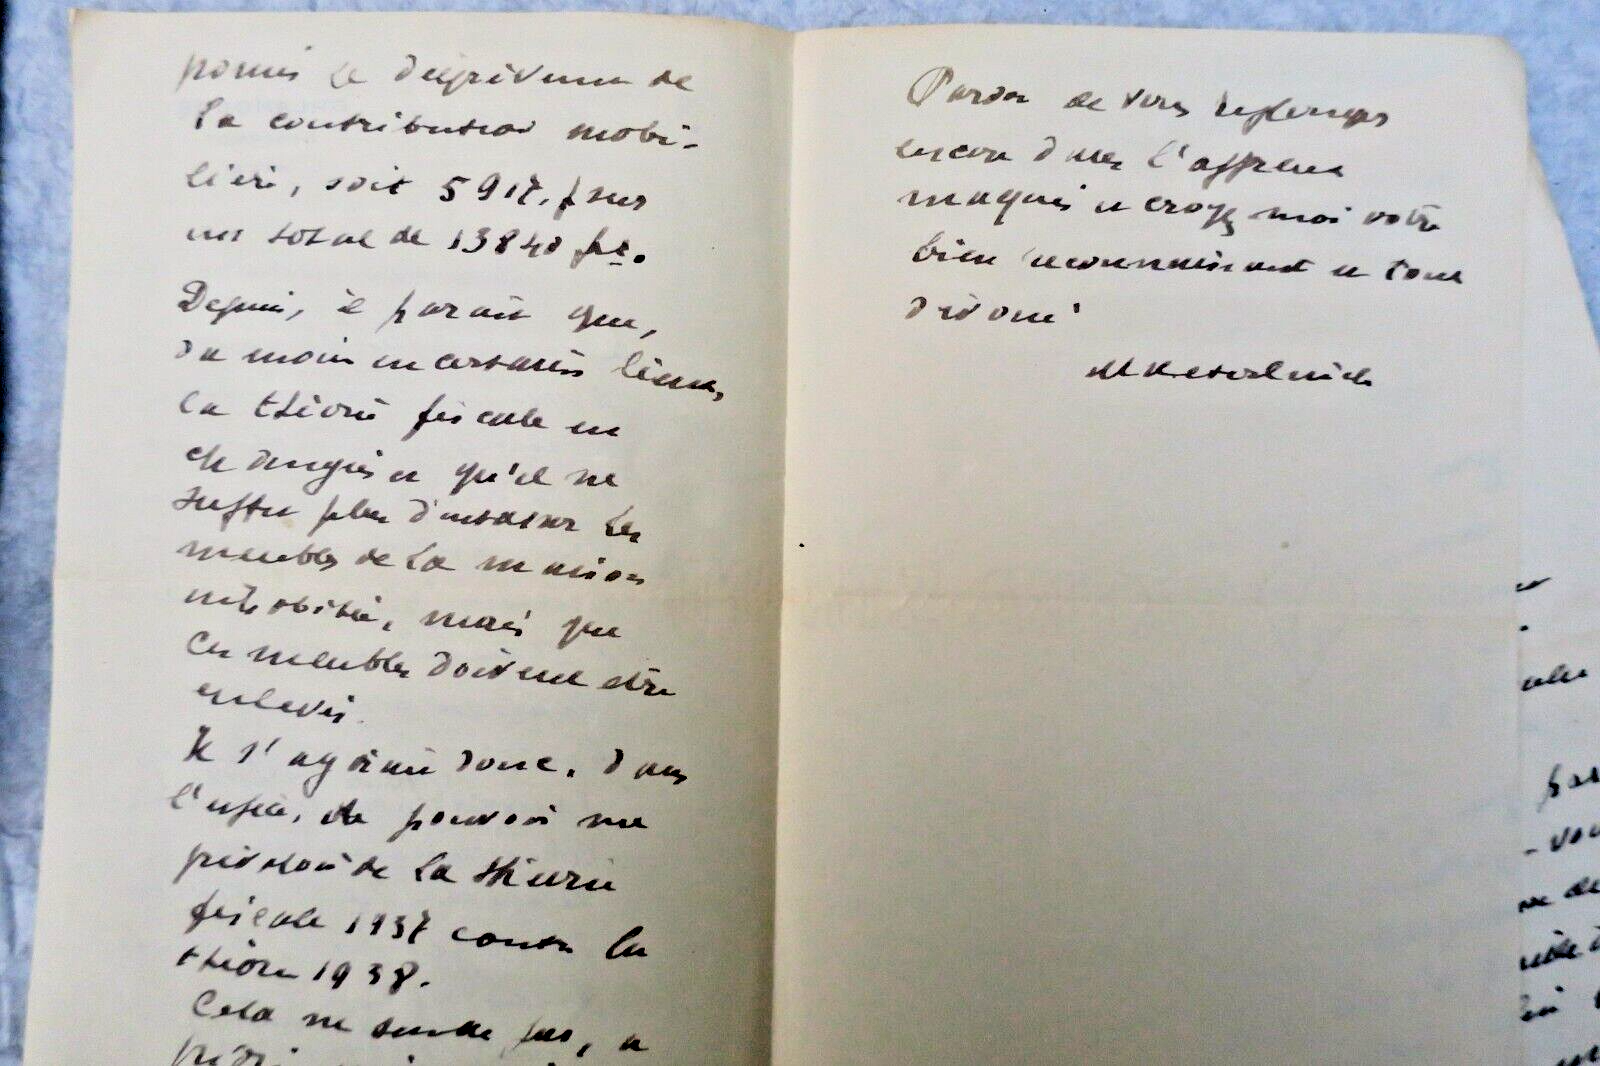 permis le dégrèvement de
la contribution mobi-
lière, soit 5917. f sur
un total de 13840 frs.
Depuis, il paraît que,
du moins en certains lieux,
la théorie fiscale en
changée et qu'il ne
suffit plus d'entasser les
meubles de la maison
inhabitée, mais que
ces meubles doivent être
enlevés.
Il s'agirait donc, dans
l'espèce, de pouvoir me
prévaloir de la théorie
fiscale 1937 contre la
théorie 1938.
Cela ne semble pas, a
Pardon de vous replonger
encore dans l'affreux
maquis et croyez moi votre
bien reconnaissant et tout
dévoué
M Maeterlinck
par
- vou
de